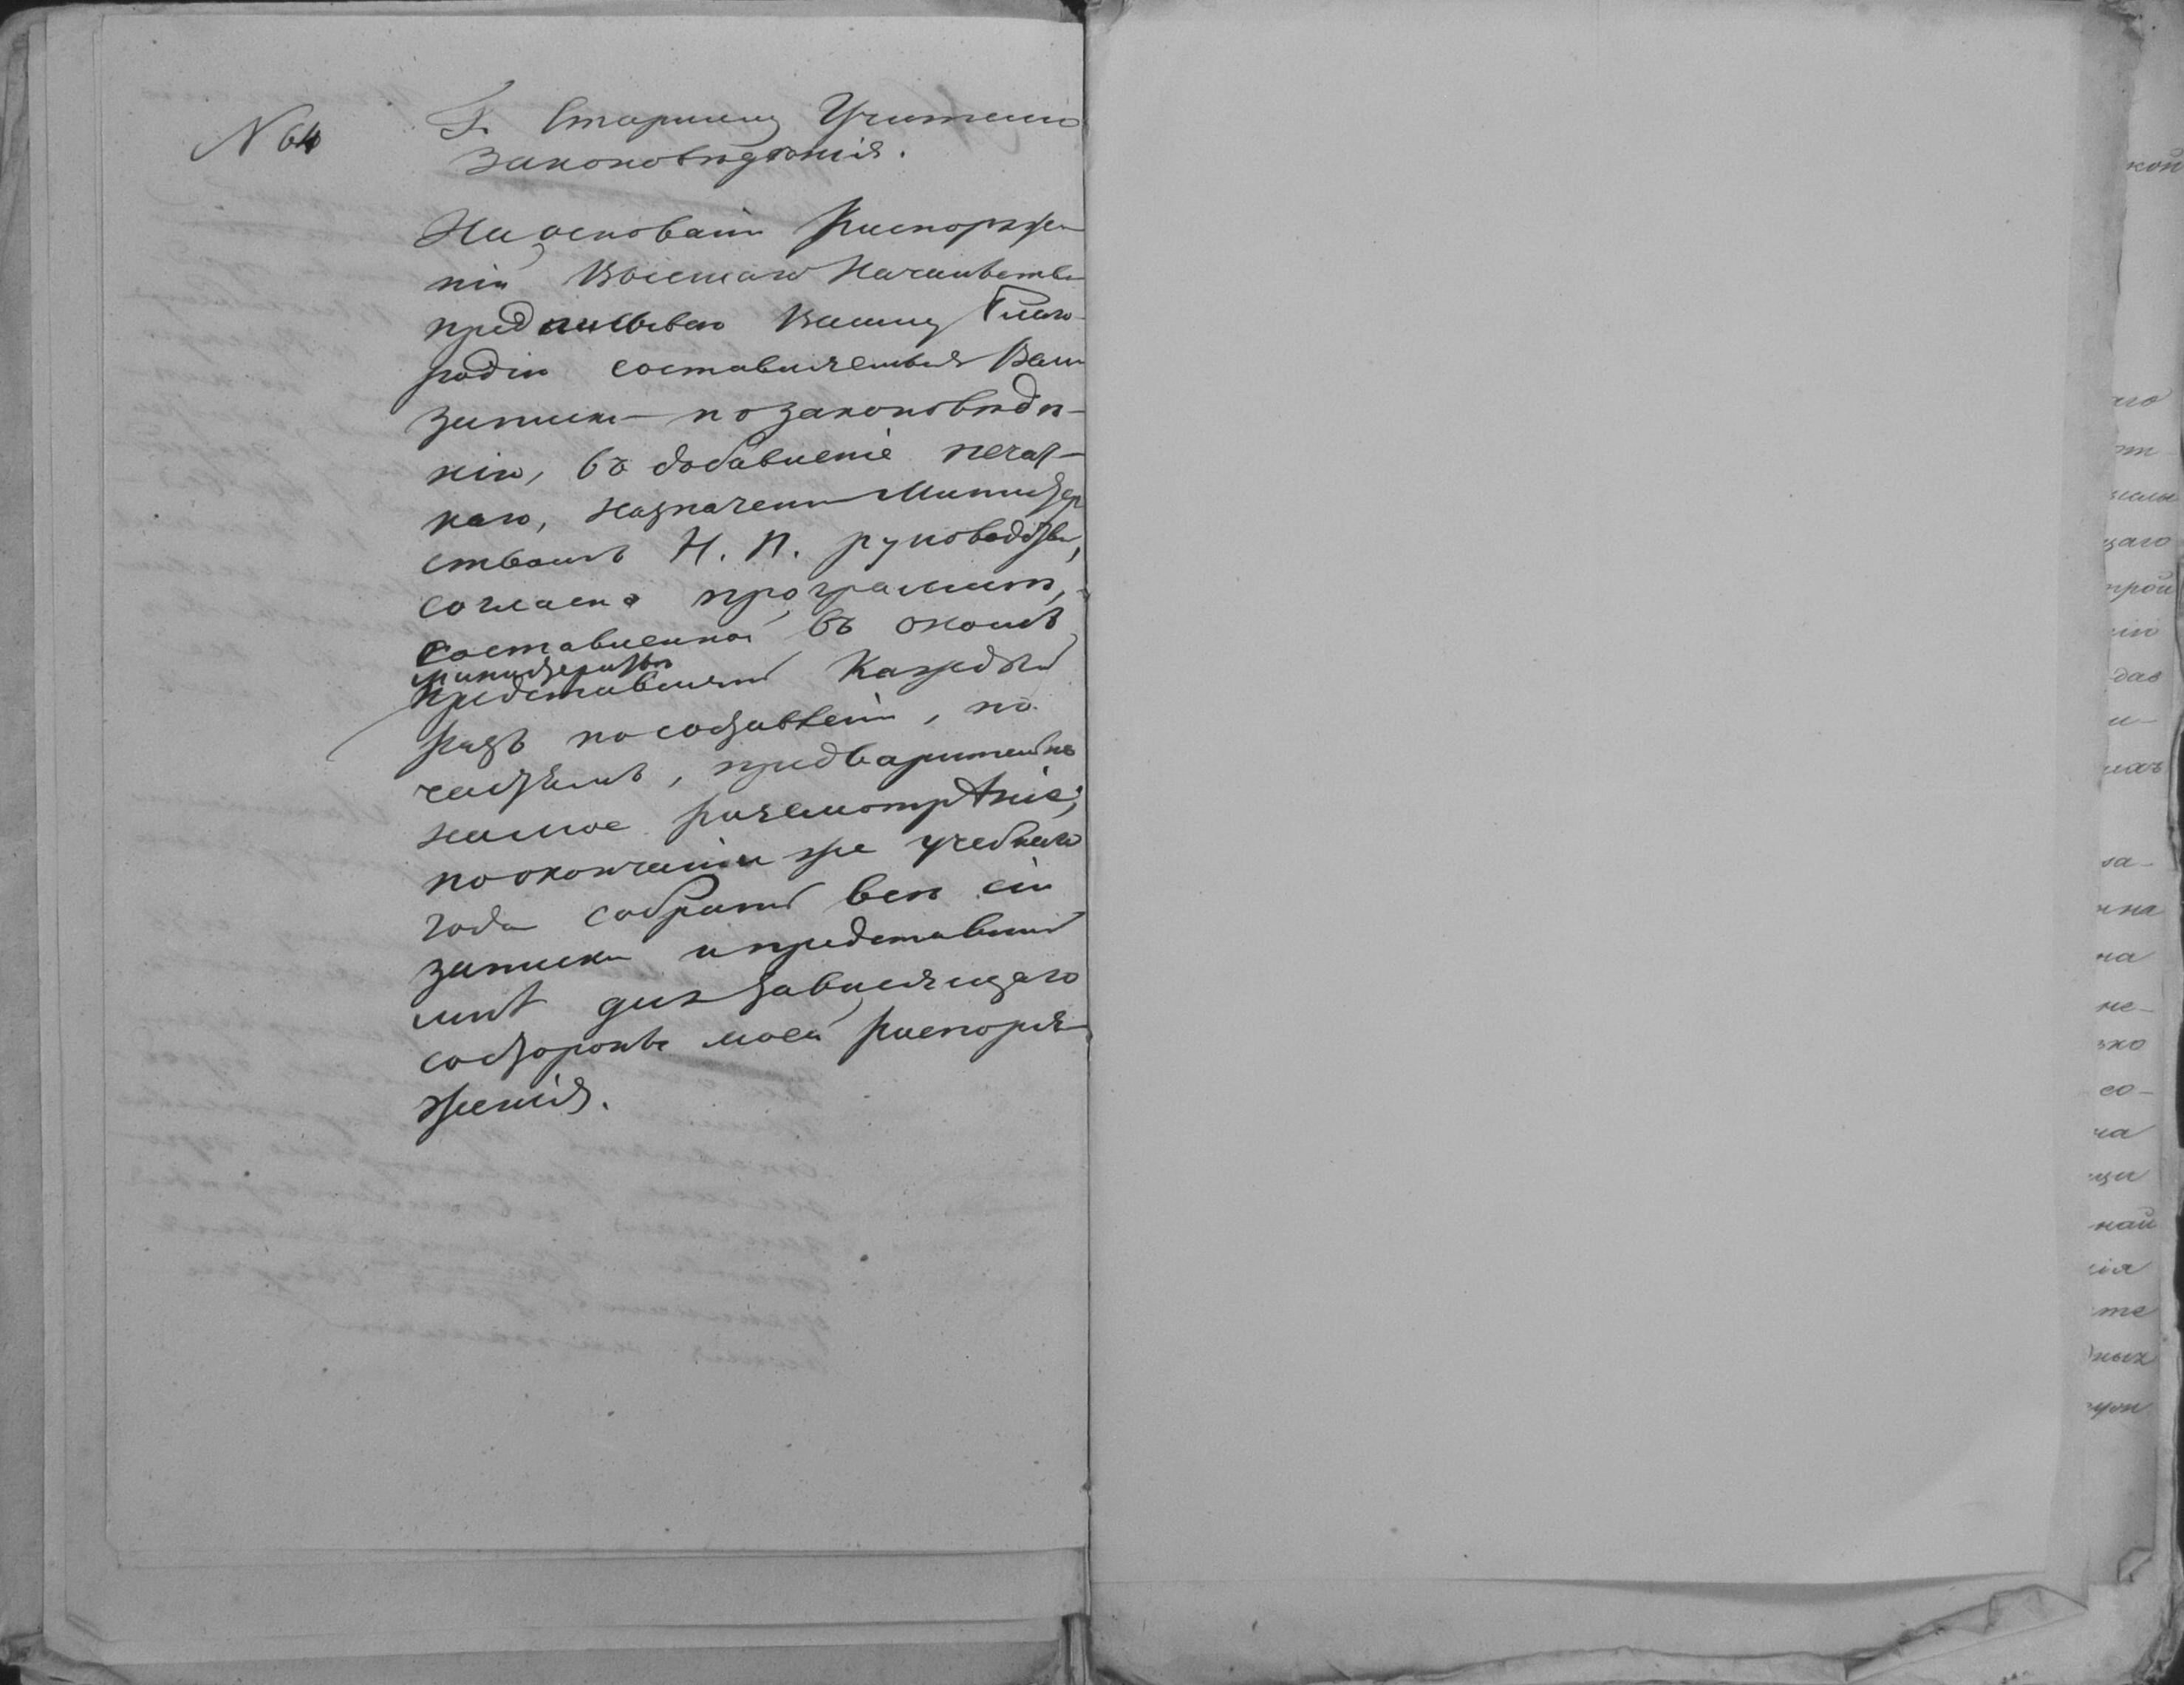 N 64
Г. Старшему Учителю
Законовѣдѣнія.
На основаніи Распоряже-
нія Высшаго Начальства
предписываю Вашему Благо-
родію составляемыя Вами
записки по законовѣдѣ-
нію, въ добавленіе печат-
наго, назначен Министер
ствомъ Н. П. руководства,
согласно программѣ,
составленной въ ономъ
Министерствѣ
представлять каждый
разъ по составленіи, по
частямъ, предварительно
на мое разсмотрѣніе;
по окончаніи же учебнаго
года собрать всѣ сіи
записки и представить
мнѣ для зависящаго
со стороны моей распоря
женія.
кой
аго
от
щаго
трой
ію
дав
и
за-
чна
на
не-
ько
со-
на
щи
най
нія
те
ныхъ